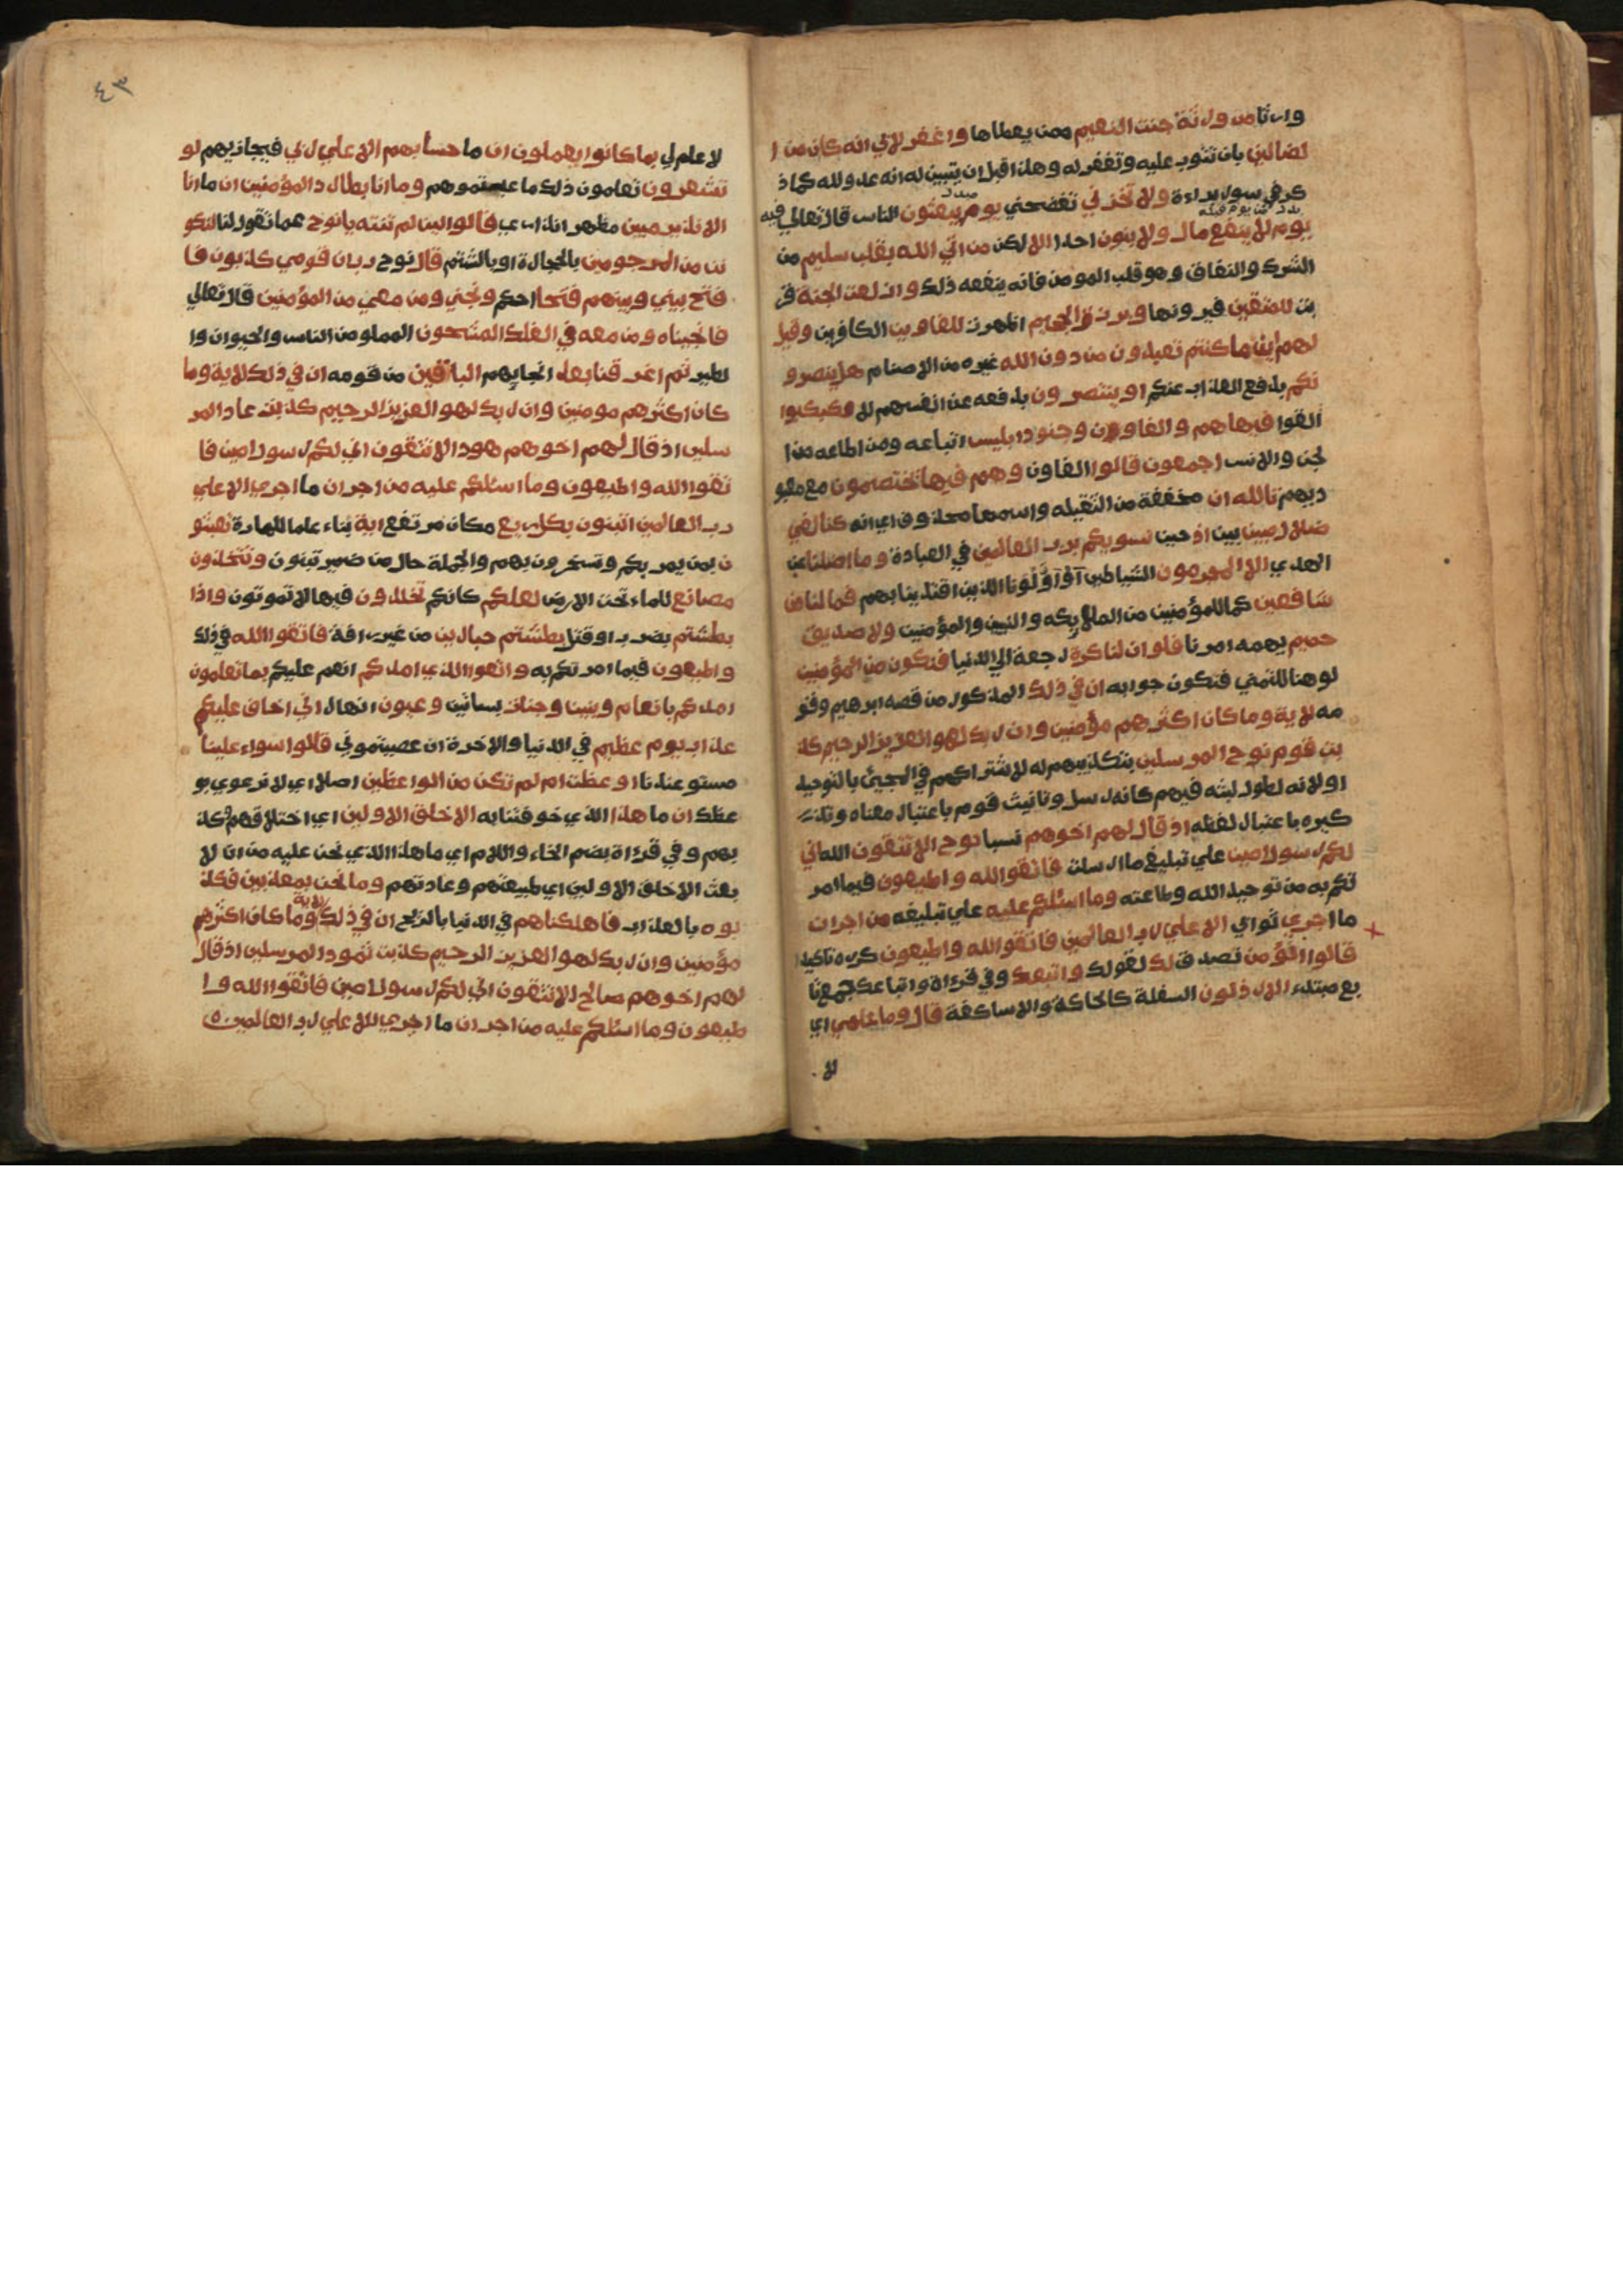 وا تا من ورثة جنت النعيم ممن يعطاها واغفر لابي انه كان من ا
لضالين بان تتوب عليه وتغفر له وهذا قبل ان يتبين له انه عدو لله كما ذ
كر في سورة براءة ولا تخزني تفضحني يوم يبعثون الناس قال تعالى فيه
يوم لا ينفع مال ولا بنون احدا الا لكن من اتي الله بقلب سليم من
الشرك والنفاق وهو قلب المومن فانه ينفعه ذلك وازلفت الجنة قر
بت للمتقين فيرونها وبرزت الجحيم اظهرت للغاوين الكافرين وقيل
لهم اينما كنتم تعبدون من دون الله غيره من الاصنام هل ينصرو
نكم بدفع العذاب عنكم او ينتصرون بدفعه عن انفسهم لا فكبكبوا
القوا فيها هم والغاوون وجنود ابليس اتباعه ومن اطاعه من ا
لجن والانس اجمعون قالوا الغاون وهم فيها يختصمون مع معبو
ديهم تالله ان مخففة من الثقيله واسمها محذوف اي انه كنا لفي
ضلال مبين بين اذ حين نسويكم برب العالمين في العبادة وما اضلنا عن
الهدي الا المجرمون الشياطين او اولونا الذين اقتدينا بهم فما لنا من
شافعين كما للمؤمنين من الملايكه والنبيين والمؤمنين ولا صديق
حميم يهمه امرنا فلو ان لنا كرة رجعة الي الدنيا فنكون من المؤمنين
لو هنا للتمني فنكون جوابه ان في ذلك المذكور من قصه ابرهيم وقو
مه لاية وما كان اكثرهم مؤمنين وان ربك لهو العزيز الرحيم كذ
بت قوم نوح المرسلين بتكذيبهم له لاشتراكهم في المجيئ بالتوحيد
او لانه لطول لبثه فيهم كانه رسل وتانيث قوم باعتبار معناه وتذ
كيره باعتبار لفظه اذ قال لهم اخوهم نسبا نوح الا تتقون الله اني
لكم رسول امين علي تبليغ ما ارسلت فاتقوا الله واطيعون فيما امر
تكم به من توحيد الله وطاعته وما اسئلكم عليه علي تبليغه من اجر ان
ما اجري ثوابي الا علي رب العالمين فاتقوا الله واطيعون كرره تاكيدا
قالوا انؤمن نصدق لك لقولك واتبعك وفي قراة واتباعك جمع تا
بع مبتدء الارذلون السفلة كالحاكة والاساكفة قال وما علمي اي
لا
٤٣
لا علم لي بما كانوا يعملون ان ما حسابهم الا علي ربي فيجازيهم لو
تشعرون تعلمون ذلك ما عبتموهم وما انا بطارد المؤمنين ان ما انا
الا نذير مبين مظهر انذاري قالوا لين لم تنته يانوح عما تقول لنا لتكو
نن من المرجومين بالحجارة او بالشتم قال نوح رب ان قومي كذبون فا
فتح بيني وبينهم فتحا احكم ونجني ومن معي من المؤمنين قال تعالي
فانجيناه ومن معه في الفلك المشحون المملو من الناس والحيوان وا
لطير ثم اغرقنا بعد انجايهم الباقين من قومه ان في ذلك لاية وما
كان اكثرهم مومنين وان ربك لهو العزيز الرحيم كذبت عاد المر
سلين اذ قال لهم اخوهم هود الا تتقون اني لكم رسول امين فا
تقوا الله واطيعون وما اسئلكم عليه من اجر ان ما اجري الا علي
رب العالمين اتبنون بكل ريع مكان مرتفع اية بناء علما للمارة تعبثو
ن بمن يمر بكم وتسخرون بهم والجملة حال من ضمير تبنون وتتخذون
مصانع للماء تحت الارض لعلكم كانكم تخلدون فيها لا تموتون واذا
بطشتم بضرب او قتل بطشتم جبارين من غير رافة فاتقوا الله في ذلك
واطيعون فيما امرتكم به واتقوا الذي امدكم انعم عليكم بما تعلمون
امدكم بانعام وبنين وجنات بساتين وعيون انهار اني اخاف عليكم
عذاب يوم عظيم في الدنيا والاخرة ان عصيتموني قالوا سواء علينا
مستو عندنا اوعظت ام لم تكن من الواعظين اصلا اي لا نرعوي لو
عظك ان ما هذا الذي خوفتنا به الا خلق الاولين اي اختلاقهم وكذ
بهم وفي قراة بضم الخاء واللام اي ما هذا الذي نحن عليه من ان لا
بعث الا خلق الاولين اي طبيعتهم وعادتهم وما نحن بمعذبين فكذ
بوه بالعذاب فاهلكناهم في الدنيا بالريح ان في ذلك لاية وما كان اكثرهم
مؤمنين وان ربك لهو العزيز الرحيم كذبت ثمود المرسلين اذ قال
لهم اخوهم صالح الا تتقون اني لكم رسول امين فاتقوا الله وا
طيعون وما اسئلكم عليه من اجر ان ما اجري الا علي رب العالمين